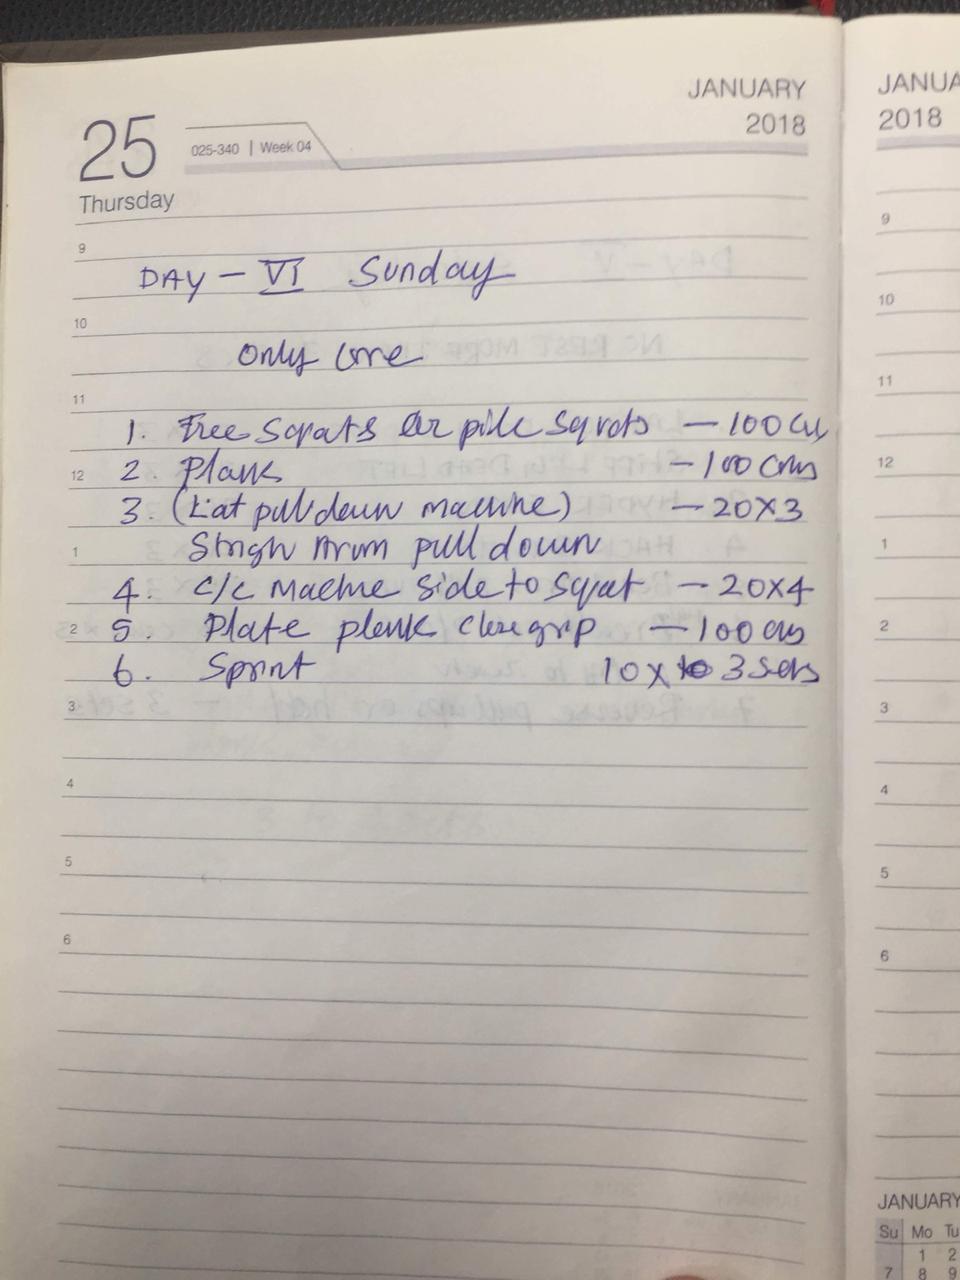 JANUARY
2018
25
025-340 | Week 04
Thursday
9
DAY - VI Sunday
10
only
11
1. Free Squats or pile Squats - 100
12 2. Plank - 100
3. (Lat pull down machine) - 20X3
1 Straigh Arm pull down
4. C/C Machine Side to Squat - 20X4
2 5. Plate plank close grip - 100
6. Sprint 10 X 3 Sets
3
4
5
6
JANUA
2018
9
10
11
12
1
2
3
4
5
6
JANUARY
Su Mo Tu
1 2
7 8 9